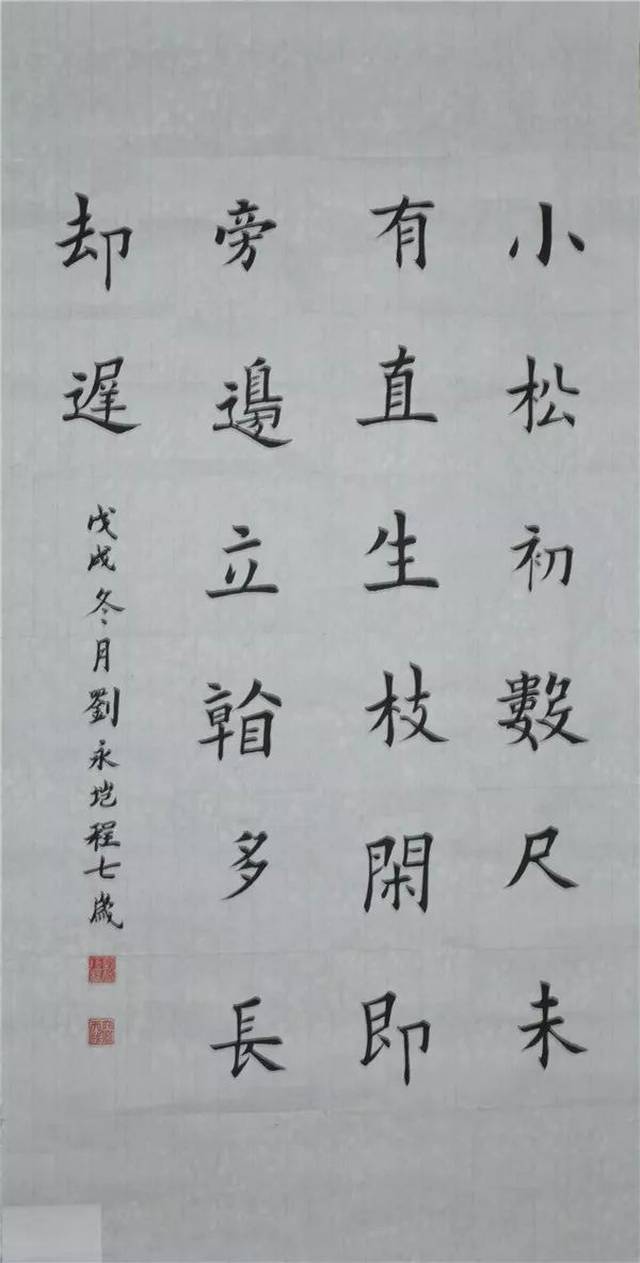 小松初數尺未
有直生枝閑即
旁邊立㫪多長
却遲
戊戌冬月劉永垲程七歲